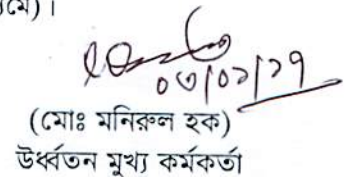 ০৩/০১/২৭
(মোঃ মনিরুল হক)
উর্ধ্বতন মুখ্য কর্মকর্তা